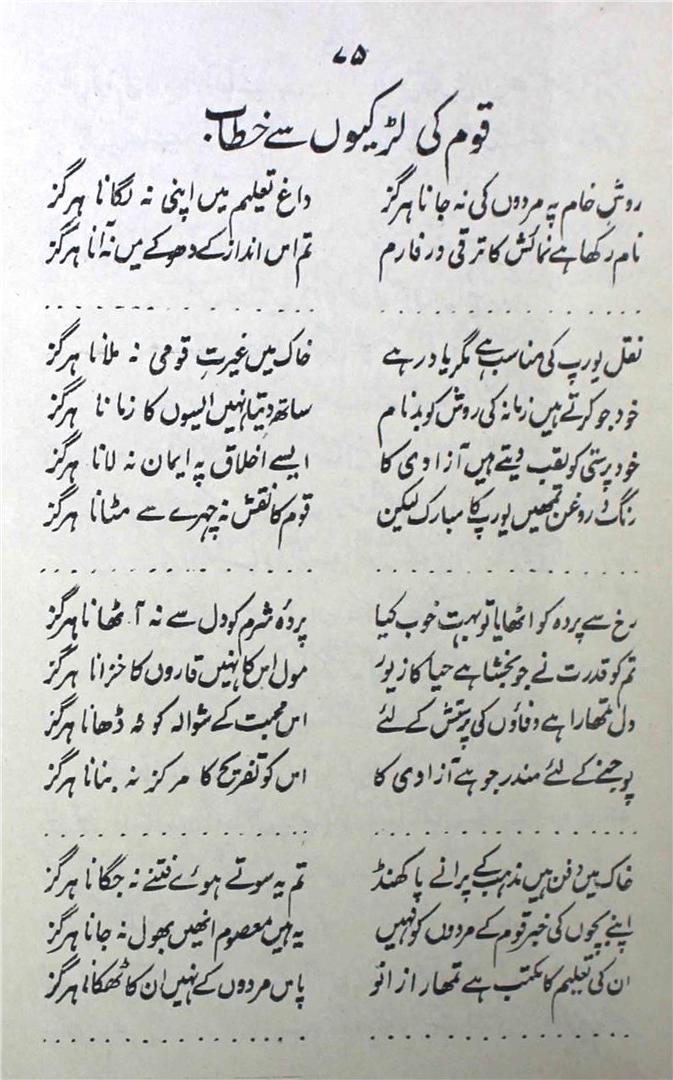 ۷۵
قوم کی لڑکیوں سے خطاب
روشِ خام پہ مردوں کی نہ جانا ہرگز داغ تعلیم میں اپنی نہ لگانا ہرگز
نام رکھا ہے نمائش کا ترقی و رفارم تم اس انداز کے دھوکے میں نہ آنا ہرگز
نقل یورپ کی مناسب ہے مگر یاد رہے خاک میں غیرتِ قومی نہ ملانا ہرگز
خود جو کرتے ہیں زمانہ کی روش کو بدنام ساتھ دیتا نہیں ایسوں کا زمانا ہرگز
خود پرستی کو لقب دیتے ہیں آزادی کا ایسے اخلاق پہ ایمان نہ لانا ہرگز
رنگ و روغن تمھیں یورپ کا مبارک لیکن قوم کا نقش نہ چہرے سے مٹانا ہرگز
رخ سے پردہ کو اٹھایا تو بہت خوب کیا پردۂ شرم کو دل سے نہ اٹھانا ہرگز
تم کو قدرت نے جو بخشا ہے حیا کا زیور مول اس کا نہیں قاروں کا خزانا ہرگز
دل تمھارا ہے وفاؤں کی پرستش کے لئے اس محبت کے شوالہ کو نہ ڈھانا ہرگز
پوجنے کے لئے مندر جو ہے آزادی کا اس کو تفریح کا مرکز نہ بنانا ہرگز
خاک میں دفن ہیں مذہب کے پرانے پاکھنڈ تم یہ سوتے ہوئے فتنے نہ جگانا ہرگز
اپنے بچوں کی خبر قوم کے مردوں کو نہیں یہ ہیں معصوم انھیں بھول نہ جانا ہرگز
ان کی تعلیم کا مکتب ہے تمھارا زانو پاس مردوں کے نہیں ان کا ٹھکانا ہرگز